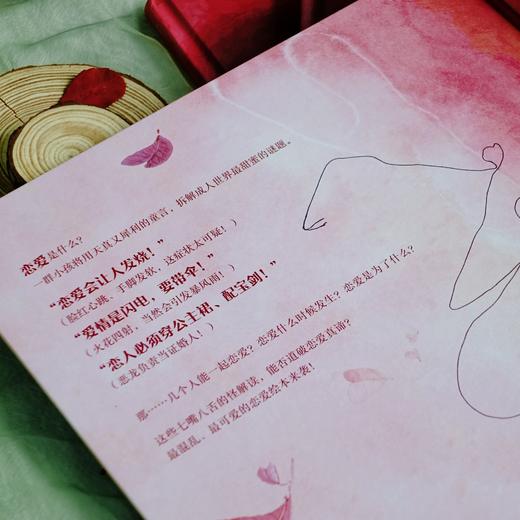 恋爱是什么？
一群小孩将用天真又犀利的童言，拆解成人世界最甜蜜的谜题。
“恋爱会让人发烧！”
（脸红心跳、手脚发软，这症状太可疑！）
“爱情是闪电，要带伞！”
（火花四射，当然会引发暴风雨！）
“恋人必须穿公主裙、配宝剑！”
（恶龙负责当证婚人！）
那……几个人能一起恋爱？恋爱什么时候发生？恋爱是为了什么？
这些七嘴八舌的怪解读，能否道破恋爱真谛？
最混乱、最可爱的恋爱绘本来袭！